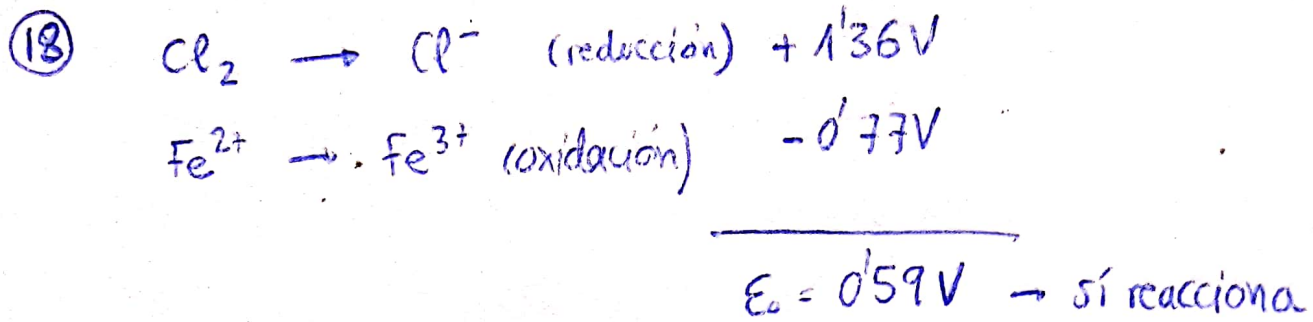 18 Cl₂ → Cl⁻ (reducción) + 1'36V
Fe²⁺ → Fe³⁺ (oxidación) - 0'77V
ε₀ = 0'59V → sí reacciona